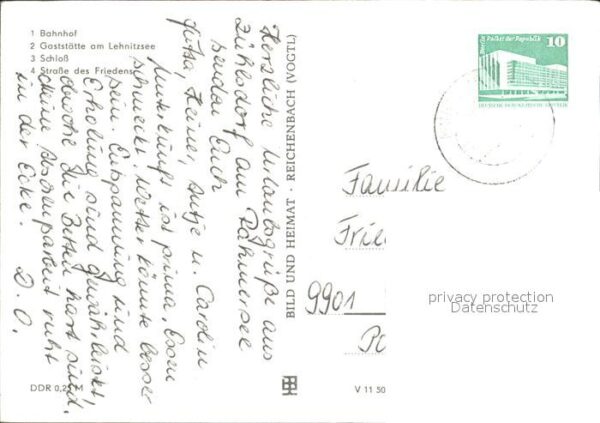 1 Bahnhof
2 Gaststätte am Lehnitzsee
3 Schloß
4 Straße des Friedens
Herzliche Urlaubsgrüße aus
Zühlsdorf am Rahmersee
senden Euch
Jutta, Heiner, Antje u. Carolin.
Unterkunft ist prima, Essen
schmeckt, Wetter könnte besser
sein. Entspannung und
Erholung sind gewährleistet,
die Betten hart sind,
meine ruht
in der Ecke. D. O.
DDR 0,25
BILD UND HEIMAT · REICHENBACH (VOGTL)
V 11 50
Berlin Palast der Republik
10
DEUTSCHE DEMOKRATISCHE REPUBLIK
Familie
Frie
9901
privacy protection
Datenschutz